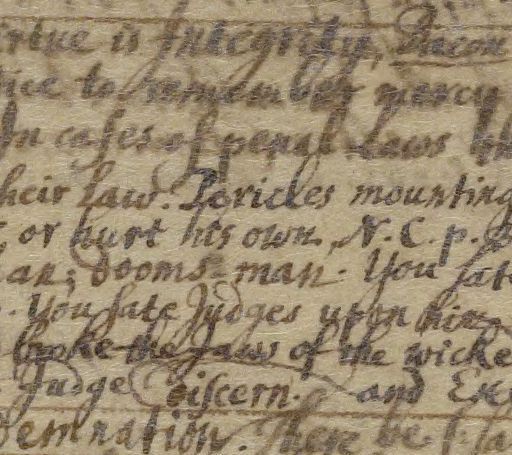 irtue is Integrity, Bacon
ice to remember mercy
In cases of penal Laws th
heir Law. Pericles mounting
, or hurt his own, N. C. p.
an; dooms-man. You sate
. You sate Judges upon him
broke the Jaws of the wicke
Judge discern. and Exe
demnation. Then be